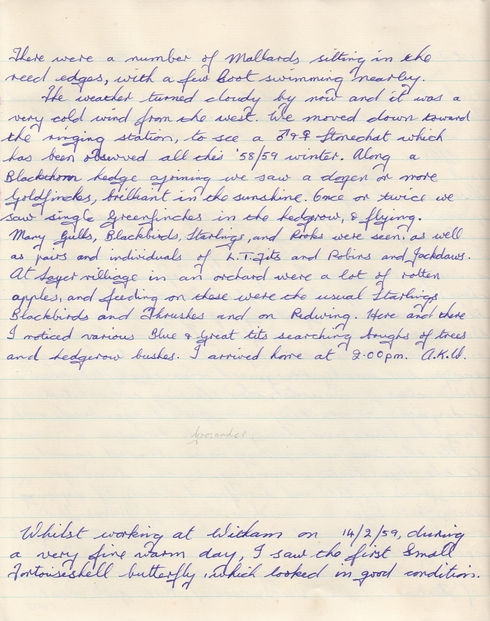 There were a number of Mallards sitting in the
reed edges, with a few Coot swimming nearby.
The weather turned cloudy by now and it was a
very cold wind from the west. We moved down toward
the ringing station, to see a ♂ & ♀ Stonechat which
has been observed all this '58/59 winter. Along a
Blackthorn hedge ajoining we saw a dozen or more
Goldfinches, brilliant in the sunshine. Once or twice we
saw single Greenfinches in the hedgrow, & flying.
Many Gulls, Blackbirds, Starlings, and Rooks were seen, as well
as pairs and individuals of L.T. Tits and Robins and Jackdaws.
At Layer villiage in an orchard were a lot of rotten
apples, and feeding on these were the usual Starlings
Blackbirds and Thrushes and on Redwing. Here and there
I noticed various Blue & Great tits searching boughs of trees
and hedgerow bushes. I arrived home at 2.00pm. A.K.W.
Whilst working at Witham on 14/2/59, during
a very fine warm day, I saw the first Small
Tortoiseshell butterfly, which looked in good condition.